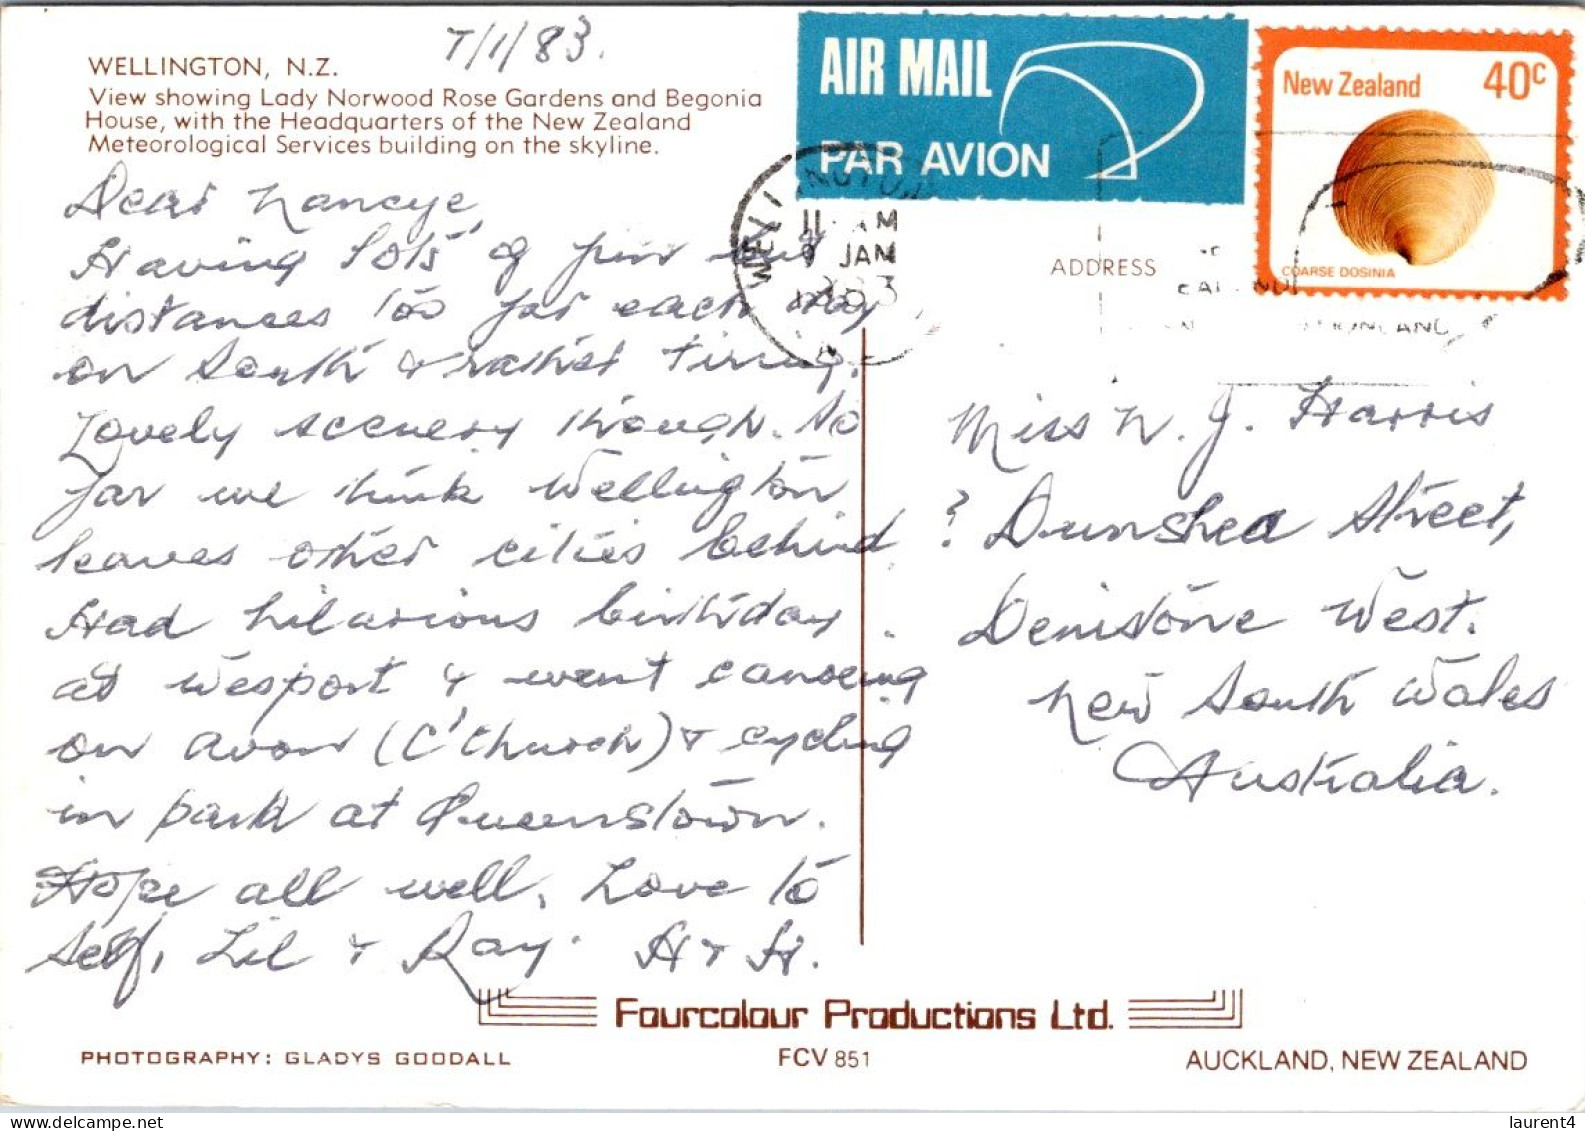 7/1/83.
WELLINGTON, N.Z.
View showing Lady Norwood Rose Gardens and Begonia
House, with the Headquarters of the New Zealand
Meteorological Services building on the skyline.
Dear Nancye,
Having lots of fun but
distances too far each day
on South & rather tiring.
Lovely scenery though. So
far we think Wellington
leaves other cities behind
Had hilarious birthday
at Wesport & went canoeing
on Avon (C'Church) & cycling
in park at Queenstown.
Hope all well. Love to
Self, Lil & Ray. H & H.
AIR MAIL
PAR AVION
New Zealand 40c
COARSE DOSINIA
11 AM
9 JAN
ADDRESS
Miss N. J. Harris
? Dunshea Street,
Denistone West.
New South Wales
Australia.
Fourcolour Productions Ltd.
PHOTOGRAPHY: GLADYS GOODALL
FCV 851
AUCKLAND, NEW ZEALAND
delcampe.net
laurent4